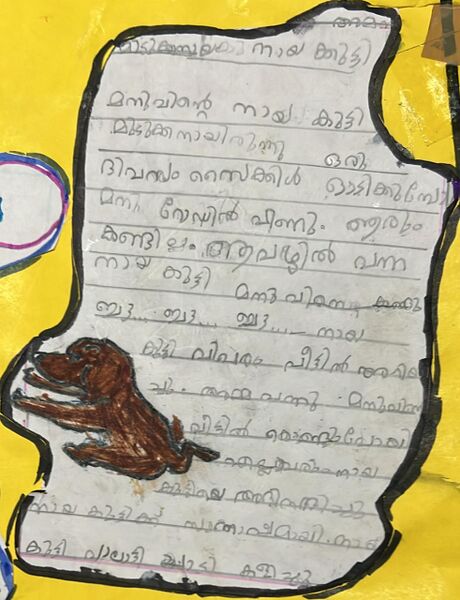 മിടുക്കനായ നായ കുട്ടി
മനുവിന്റെ നായ കുട്ടി
മിടുക്കനായിരുന്നു ഒരു
ദിവസം സൈക്കിൾ ഓടിക്കുമ്പോ
മനു റോഡിൽ വീണു. ആരും
കണ്ടില്ല. ആ വഴിൽ വന്ന
നായ കുട്ടി മനുവിനെ കണ്ടു
ബൗ... ബൗ... ബൗ... നായ
കുട്ടി വിവരം വീട്ടിൽ അറിയി
ച്ചു. അമ്മ വന്നു. മനുവിനെ
വീട്ടിൽ കൊണ്ടുപോയി
എല്ലാവരും നായ
കുട്ടിയെ അഭിനന്ദിച്ചു
നായ കുട്ടിക്ക് സന്തോഷമായി. നായ
കുട്ടി വാലാട്ടി കളിച്ചു